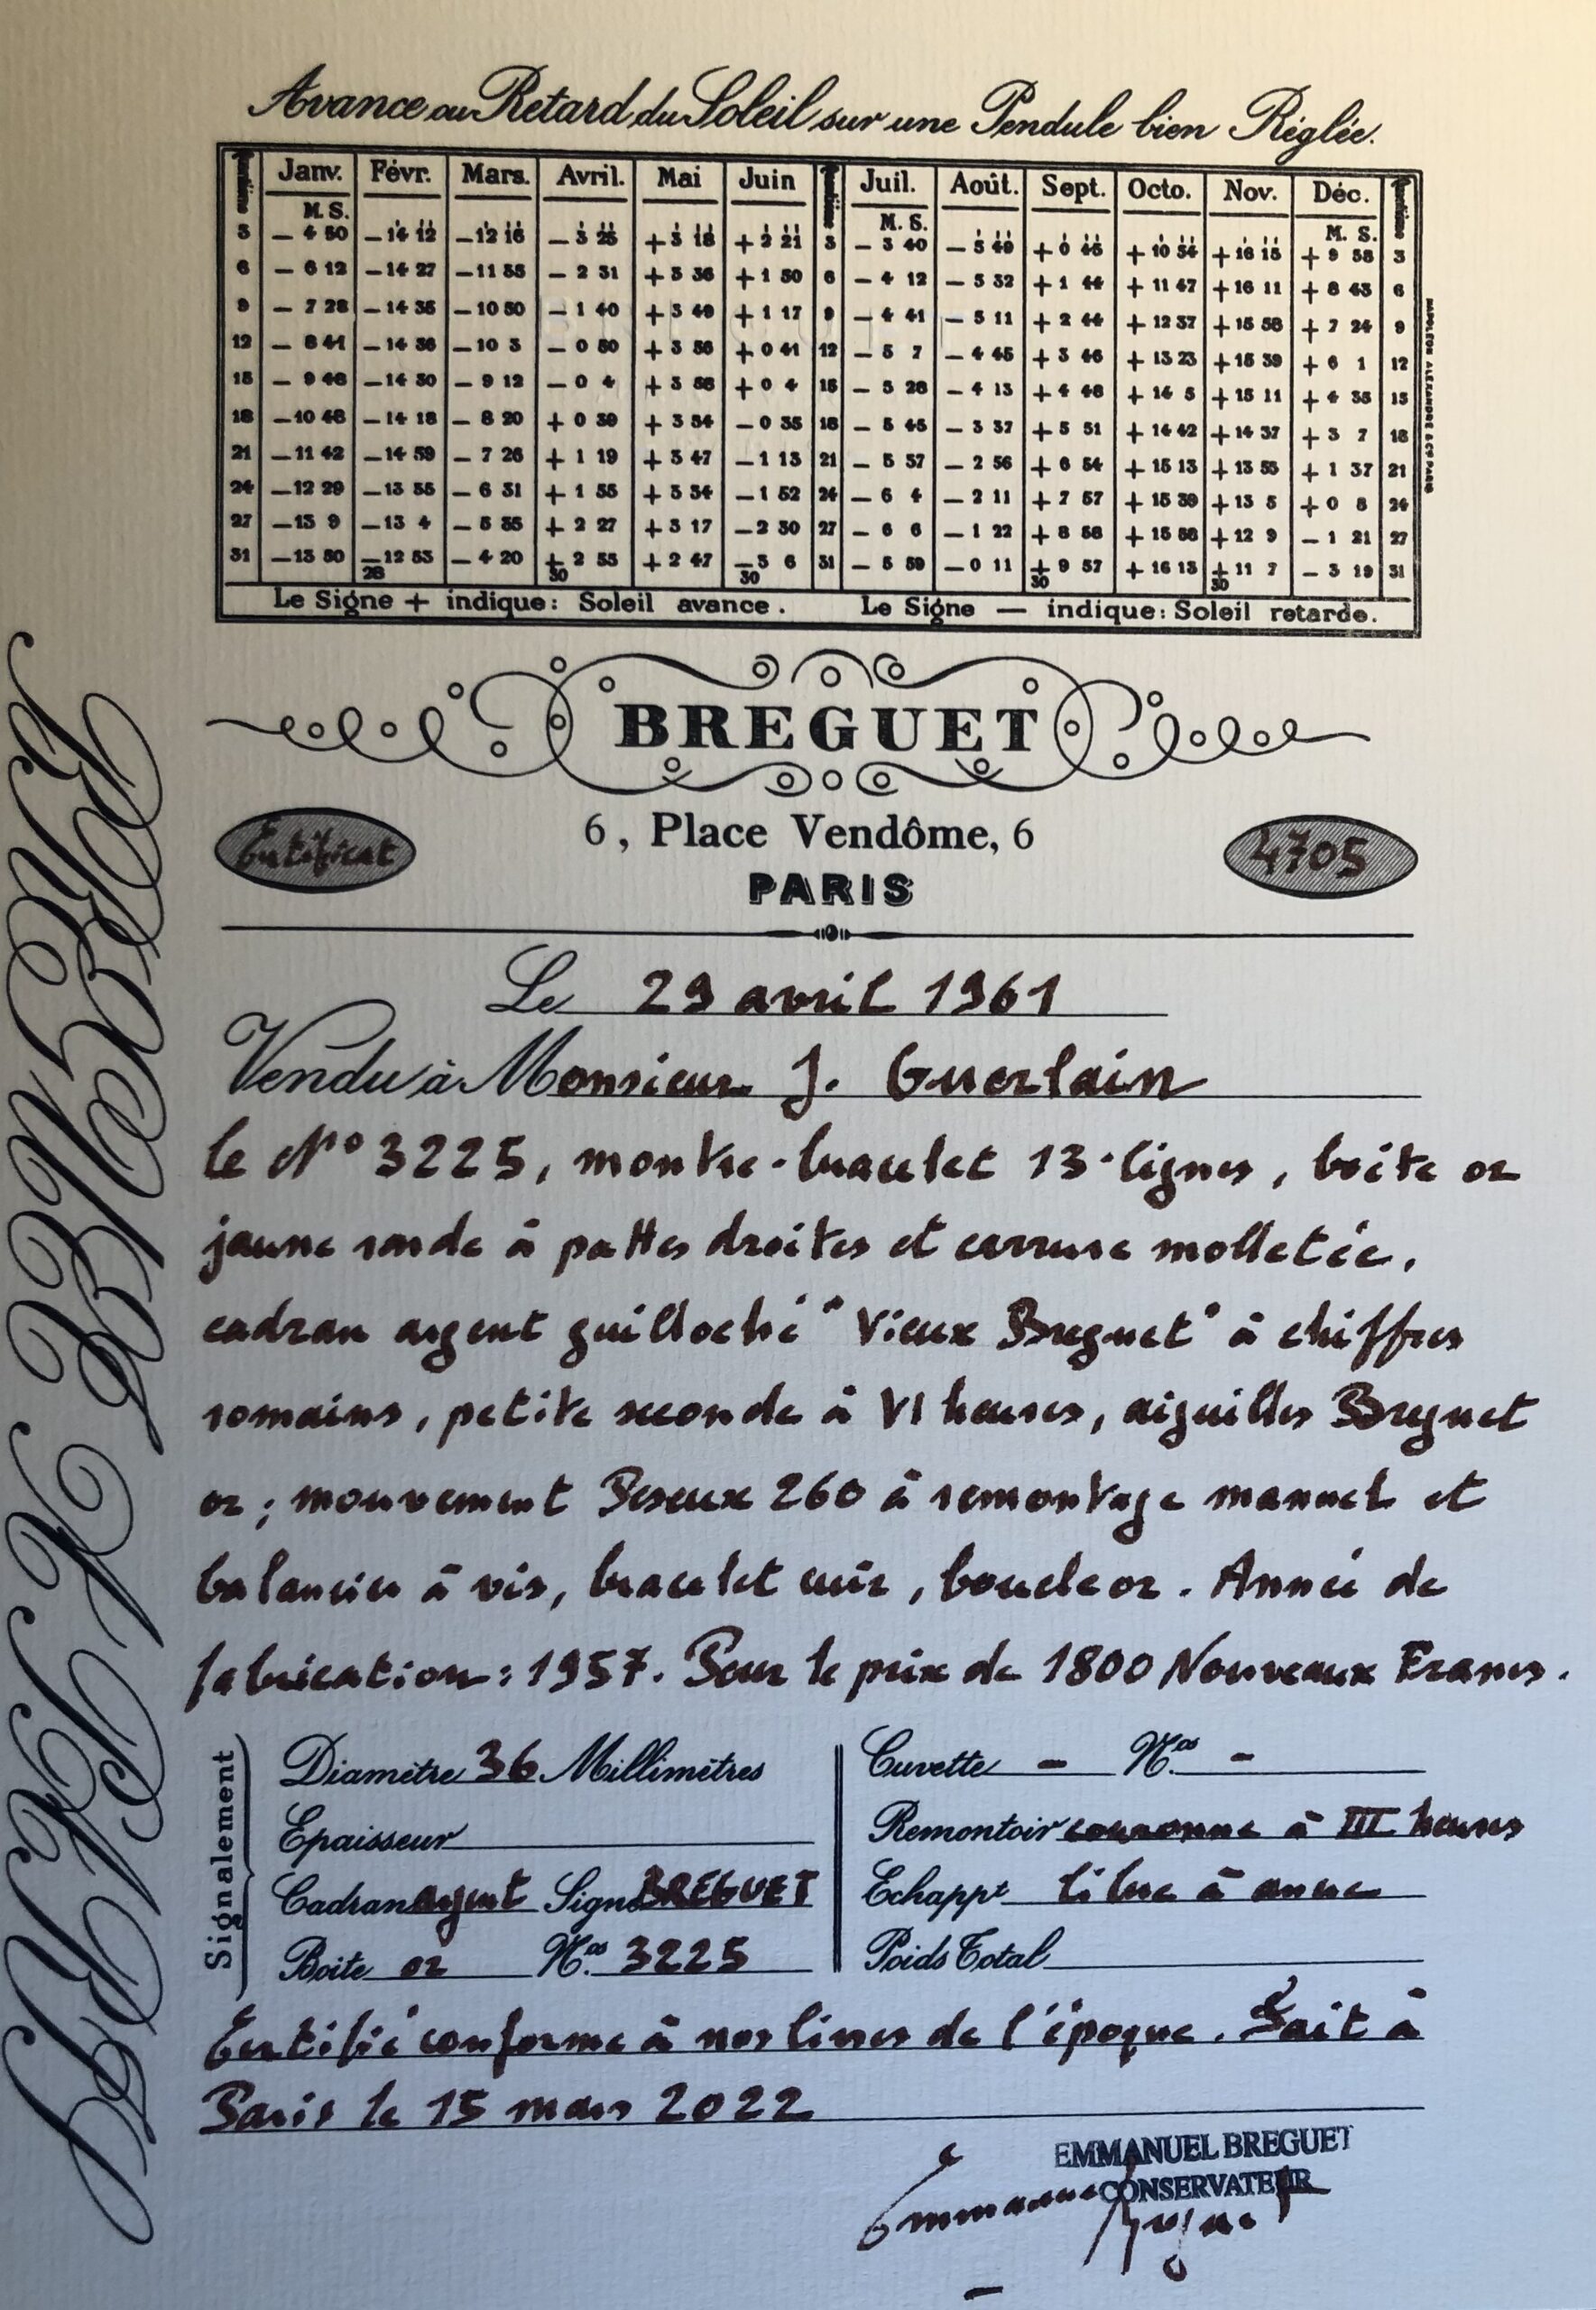 Avance ou Retard du Soleil sur une Pendule bien Réglée.
Janv. Févr. Mars. Avril. Mai Juin Juil. Août. Sept. Octo. Nov. Déc.
M. S. M. S. M. S.
3 — 4 50 —14 12 —12 16 — 3 25 +3 18 +2 21 3 — 3 40 — 5 49 +0 45 +10 54 +16 15 +9 58 3
6 — 6 12 —14 27 —11 35 — 2 31 +3 36 +1 50 6 — 4 12 — 5 32 +1 44 +11 47 +16 11 +8 43 6
9 — 7 28 —14 35 —10 50 — 1 40 +3 49 +1 17 9 — 4 41 — 5 11 +2 44 +12 37 +15 58 +7 24 9
12 — 8 41 —14 36 —10 3 — 0 50 +3 56 +0 41 12 — 5 7 — 4 45 +3 46 +13 23 +15 39 +6 1 12
15 — 9 48 —14 30 — 9 12 — 0 4 +3 56 +0 4 15 — 5 28 — 4 13 +4 48 +14 5 +15 11 +4 35 15
18 —10 48 —14 18 — 8 20 +0 39 +3 54 —0 35 18 — 5 45 — 3 37 +5 51 +14 42 +14 37 +3 7 18
21 —11 42 —14 59 — 7 26 +1 19 +3 47 —1 13 21 — 5 57 — 2 56 +6 54 +15 13 +13 55 +1 37 21
24 —12 29 —13 35 — 6 31 +1 55 +3 34 —1 52 24 — 6 4 — 2 11 +7 57 +15 39 +13 5 +0 8 24
27 —13 9 —13 4 — 5 35 +2 27 +3 17 —2 30 27 — 6 6 —1 22 +8 58 +15 58 +12 9 — 1 21 27
31 —13 50 —12 53 — 4 20 +2 55 +2 47 —3 6 31 — 5 59 —0 11 +9 57 +16 13 +11 7 — 3 19 31
28 30 30 30 30
Le Signe + indique: Soleil avance. Le Signe — indique: Soleil retarde.
NAPOLEON ALEXANDRE & Cie PARIS
BREGUET
Certificat
6, Place Vendôme, 6
4705
PARIS
Le 29 avril 1961
Vendu à Monsieur J. Guerlain
le N° 3225, montre-bracelet 13 lignes, boîte or
jaune ronde à pattes droites et carrure molletée,
cadran argent guilloché "Vieux Breguet" à chiffres
romains, petite seconde à VI heures, aiguilles Breguet
or; mouvement Peseux 260 à remontage manuel et
balancier à vis, bracelet cuir, boucle or. Année de
fabrication: 1957. Pour le prix de 1800 Nouveaux Francs.
Signalement
Diamètre 36 Millimètres
Epaisseur
Cadran argent Signé BREGUET
Boite or Nos 3225
Cuvette - Nos -
Remontoir couronne à III heures
Echappt libre à ancre
Poids Total
Certifié conforme à nos livres de l'époque. Fait à
Paris le 15 mars 2022
EMMANUEL BREGUET
CONSERVATEUR
Emmanuel Breguet